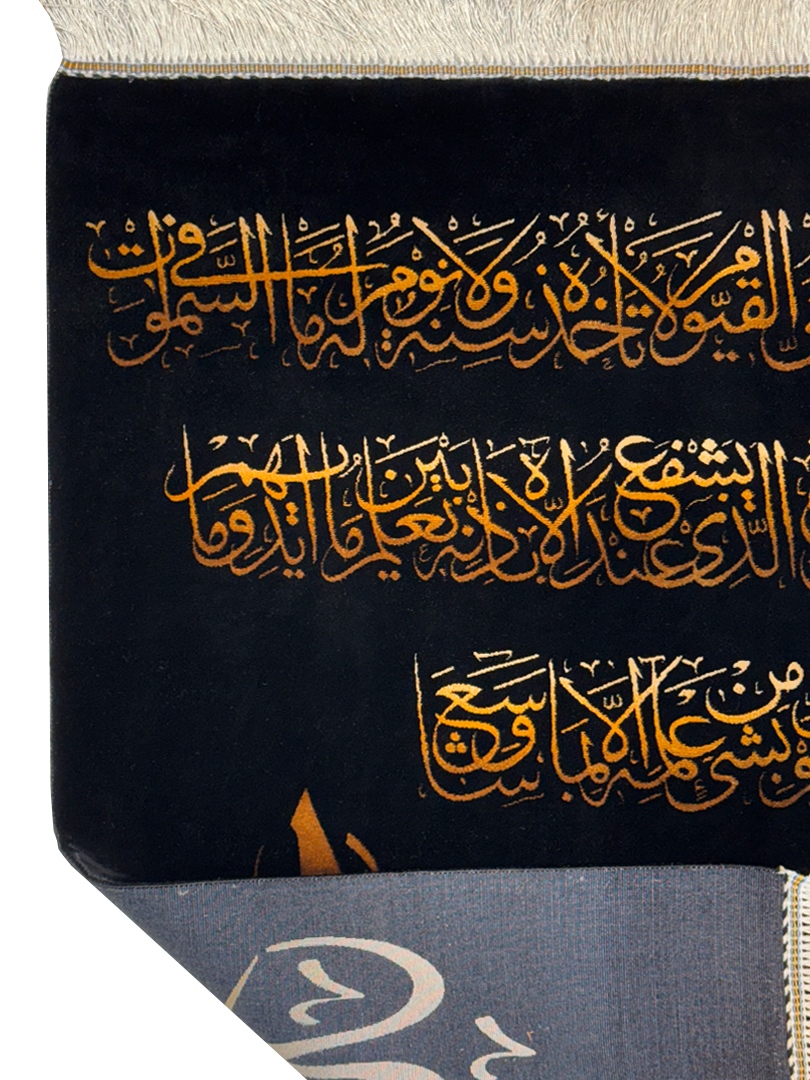 القَيُّومُ لَا تَأْخُذُهُ سِنَةٌ وَلَا نَوْمٌ لَهُ مَا فِي السَّمٰوَاتِ
الَّذِي يَشْفَعُ عِنْدَهُ إِلَّا بِإِذْنِهِ يَعْلَمُ مَا بَيْنَ أَيْدِيهِمْ وَمَا
بِشَيْءٍ مِنْ عِلْمِهِ إِلَّا بِمَا شَاءَ وَسِعَ